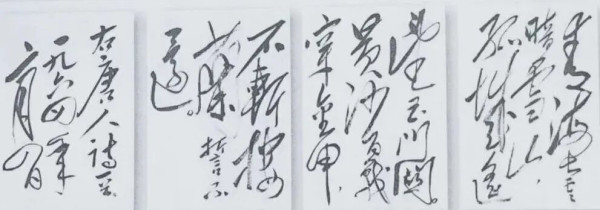 青海長雲
暗雪山,
孤城遥
望玉门關。
黄沙百戰
穿金甲,
不斬楼
蘭誓不
還。
右唐人詩一首
一九六四年
六月